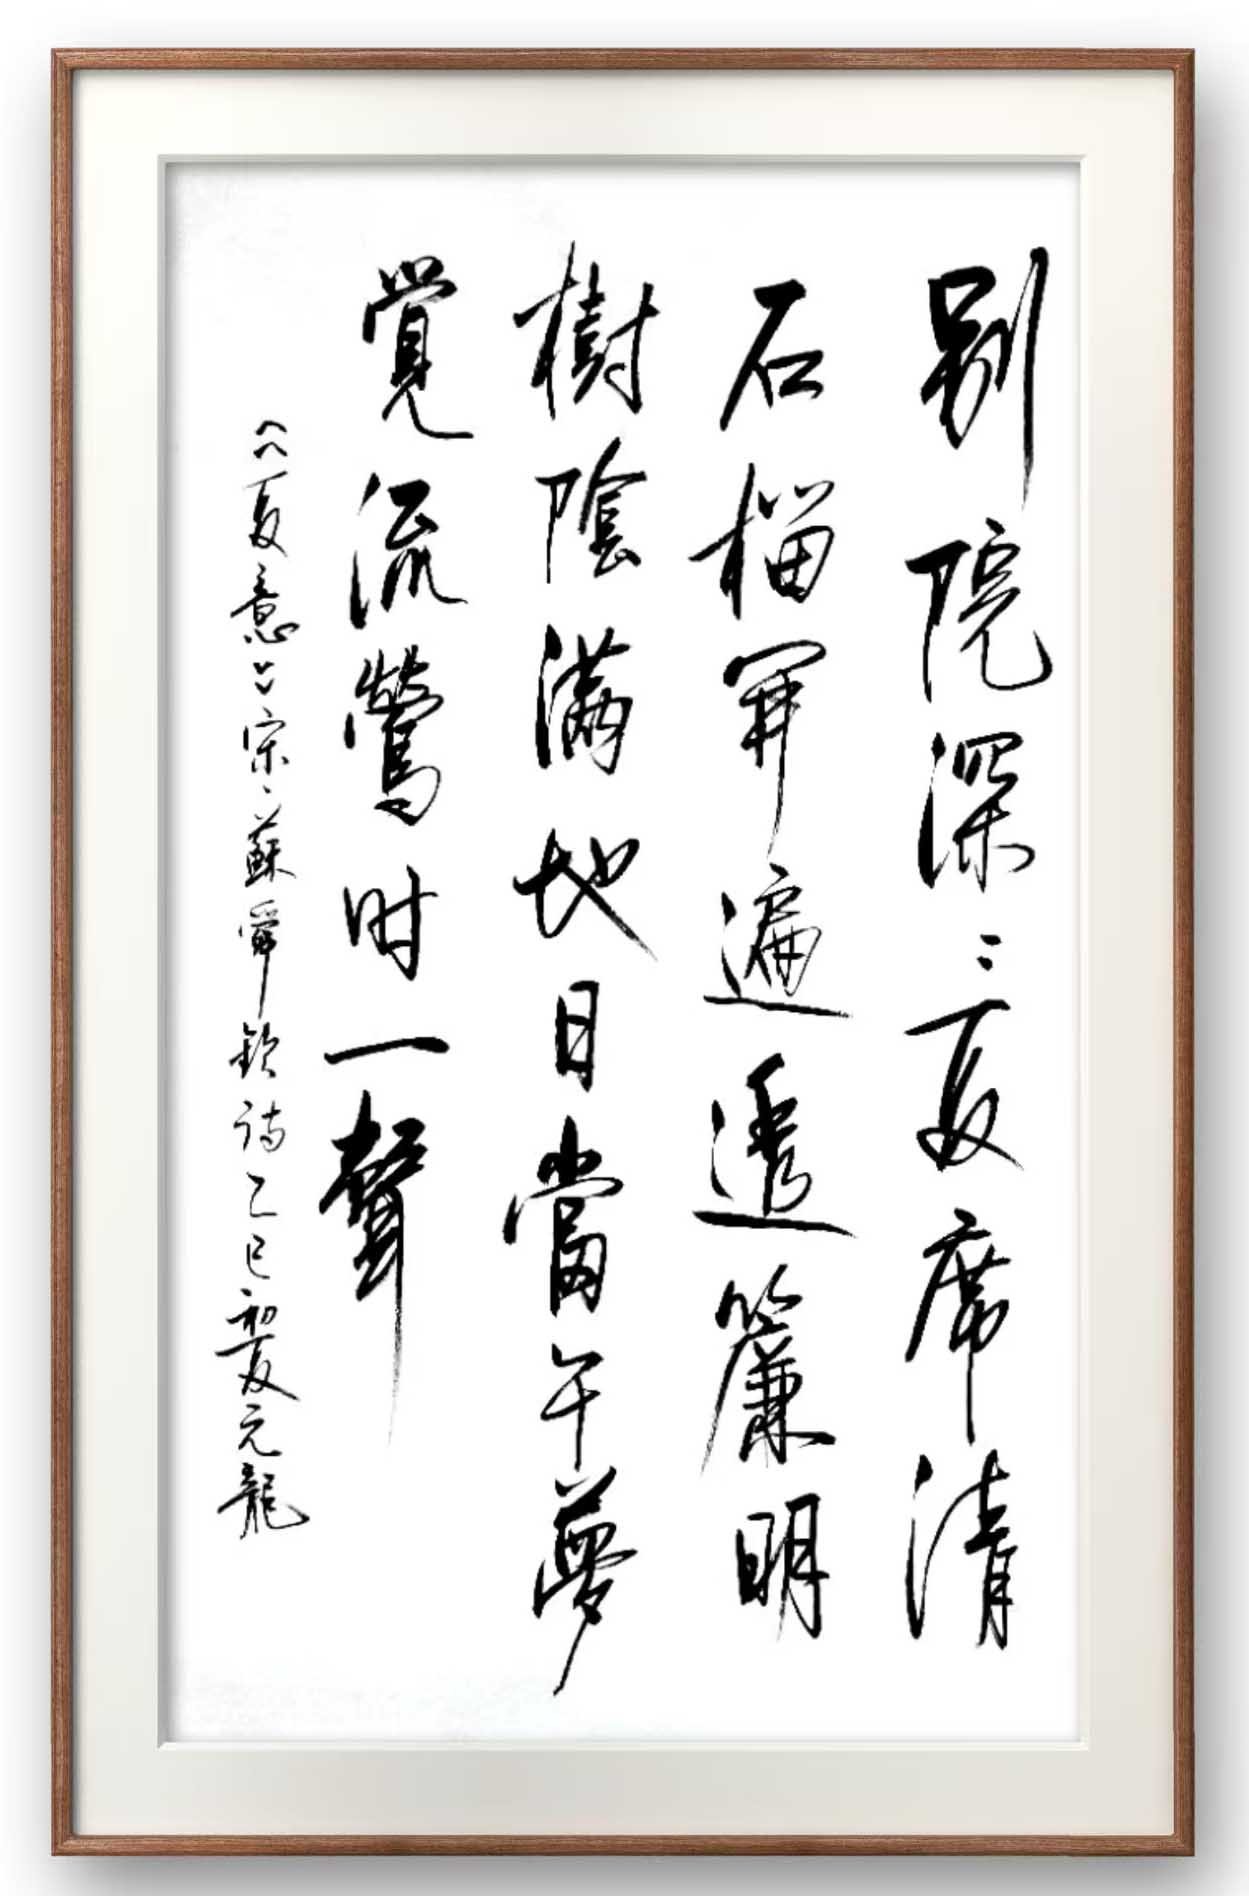 别院深〻夏席清
石榴開遍透簾明
樹陰滿地日當午夢
覺流鶯时一聲
《夏意》宋、蘇舜欽詩乙巳初夏元龍